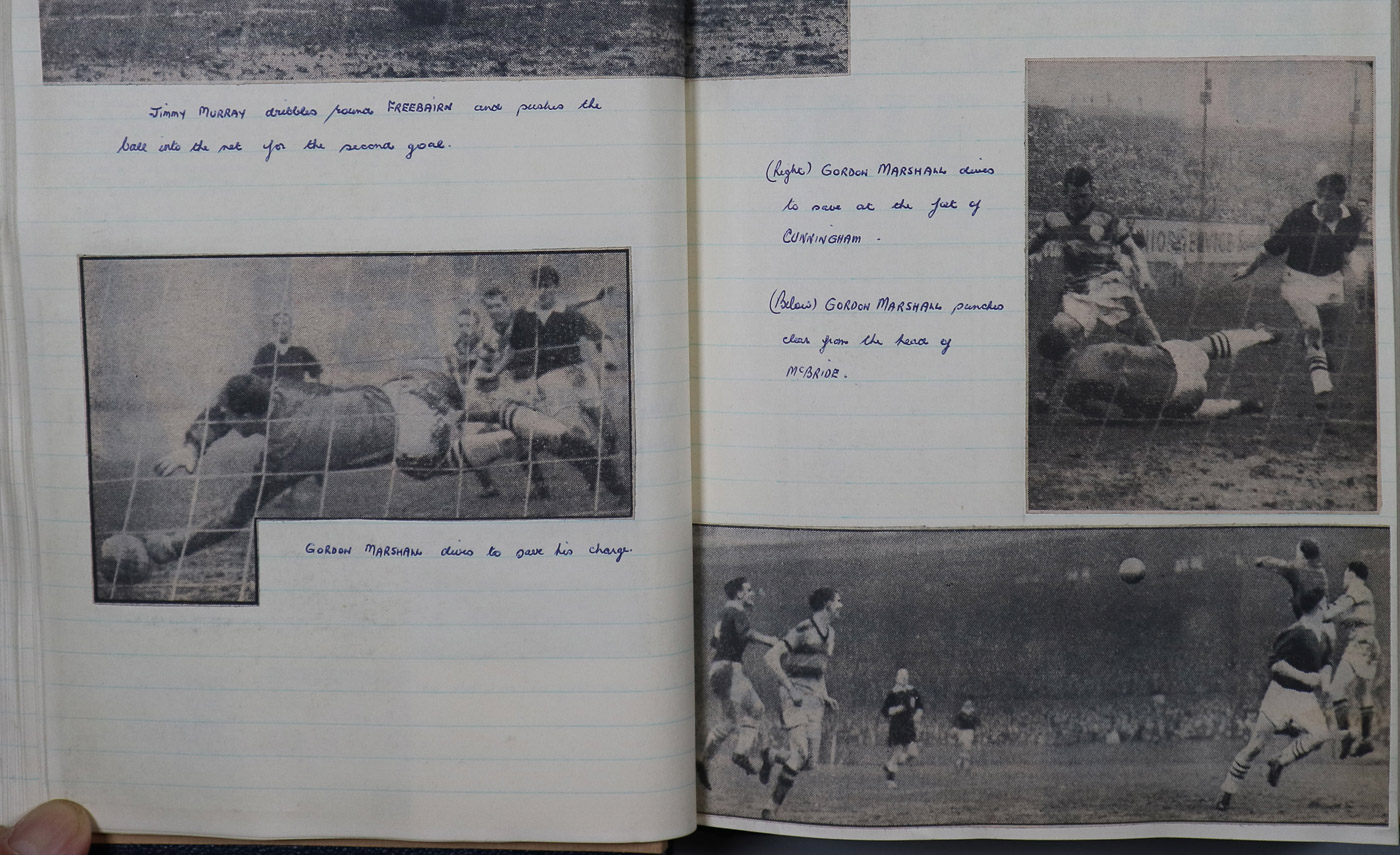 Jimmy MURRAY dribbles round FREEBAIRN and pushes the
ball into the net for the second goal.
GORDON MARSHALL dives to save his charge.
(Right) GORDON MARSHALL dives
to save at the feet of
CUNNINGHAM.
(Below) GORDON MARSHALL punches
clear from the head of
McBRIDE.